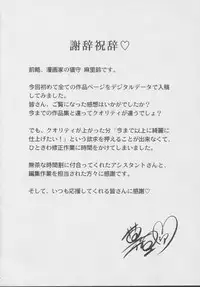 謝辞祝辞♡
前略、漫画家の猫守 麻里鈴です。
今回初めて全ての作品ページをデジタルデータで入稿
してみました。
皆さん、ご覧になった感想はいかがでしたか？
今までの作品集と違ってクオリティが違うでしょ？
でも、クオリティが上がった分「今まで以上に綺麗に
仕上げたい！」という欲求を抑えることが出来なく
て、ひときわ修正作業に時間をかけてしまいました。
無茶な時間割に付合ってくれたアシスタントさんと、
編集作業を担当された方々に感謝です。
そして、いつも応援してくれる皆さんに感謝♡